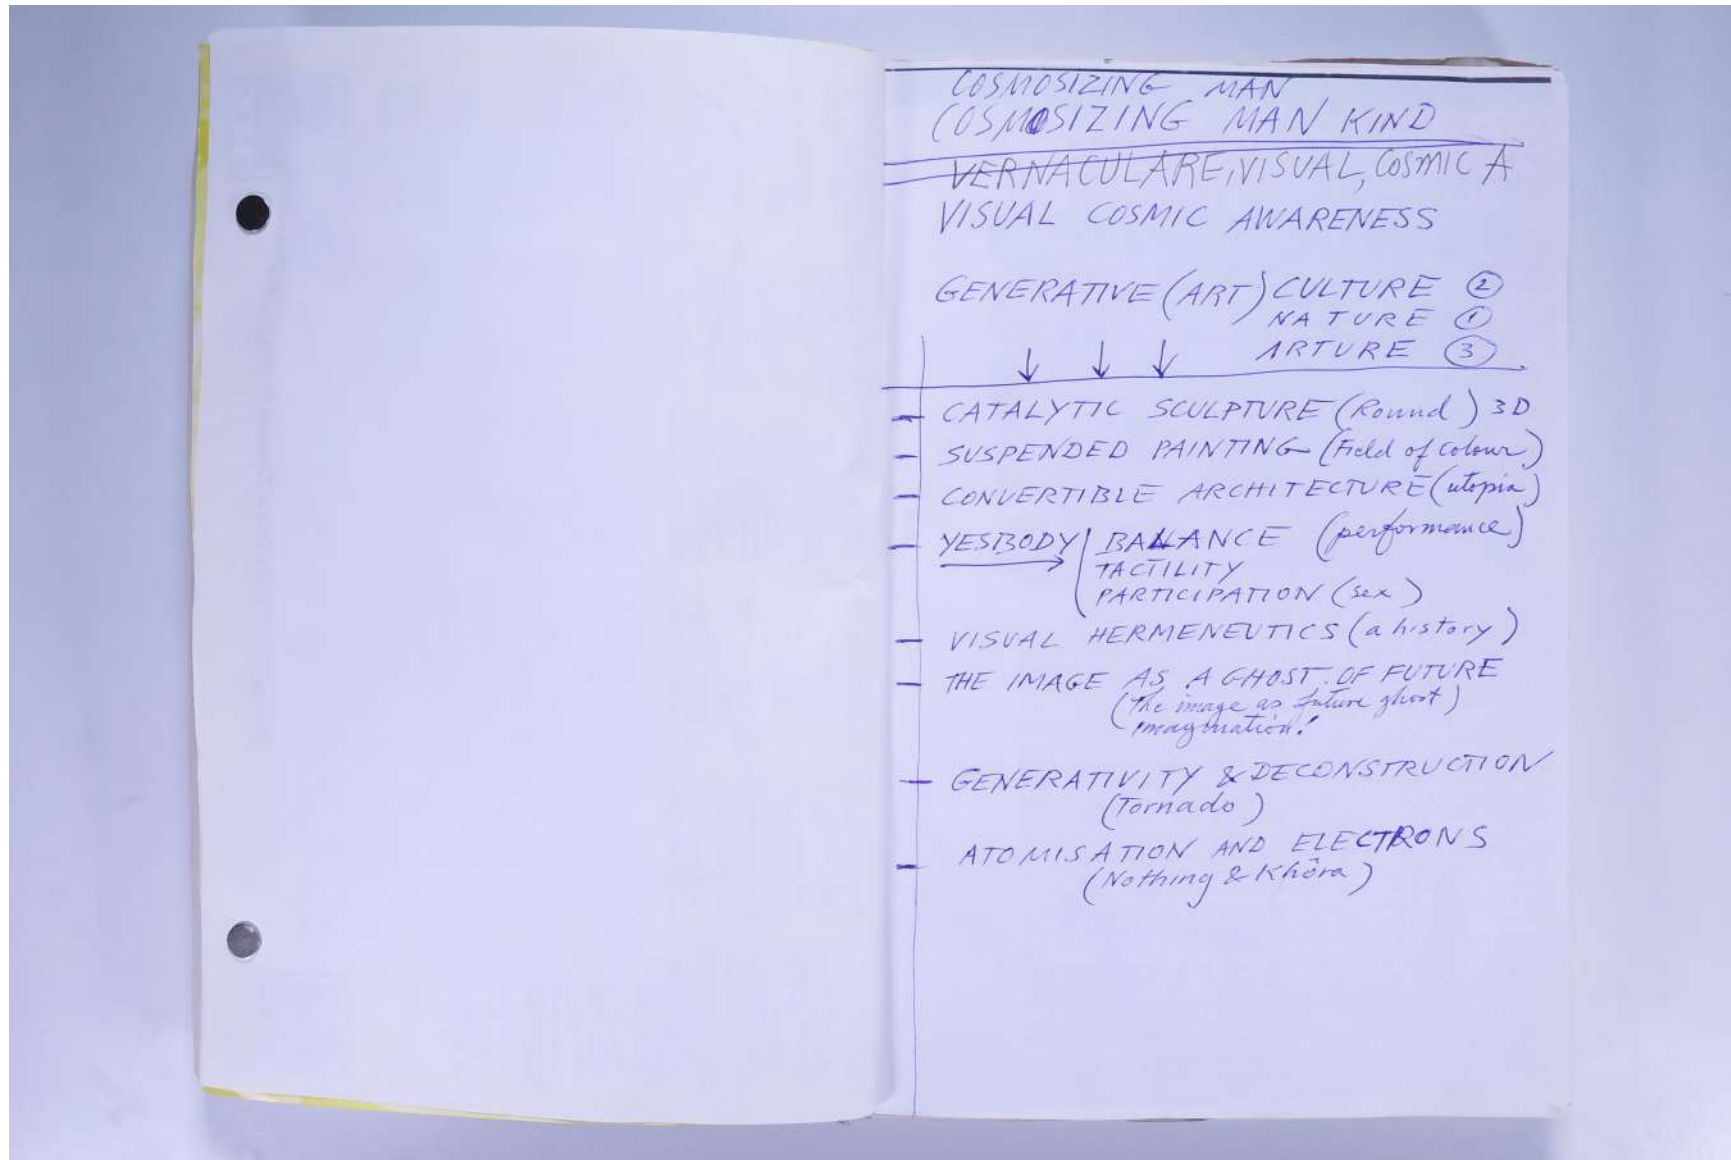 COSMOSIZING MAN
COSMOSIZING MAN KIND
VERNACULARE, VISUAL, COSMIC A
VISUAL COSMIC AWARENESS
GENERATIVE (ART) CULTURE ②
NATURE ①
ARTURE ③
↓ ↓ ↓
– CATALYTIC SCULPTURE (Round) 3D
– SUSPENDED PAINTING (Field of colour)
– CONVERTIBLE ARCHITECTURE (utopia)
– YESBODY BALANCE (performance)
TACTILITY
PARTICIPATION (sex)
– VISUAL HERMENEUTICS (a history)
– THE IMAGE AS A GHOST OF FUTURE
(the image as future ghost)
imagination!
– GENERATIVITY & DECONSTRUCTION
(Tornado)
– ATOMISATION AND ELECTRONS
(Nothing & Khôra)